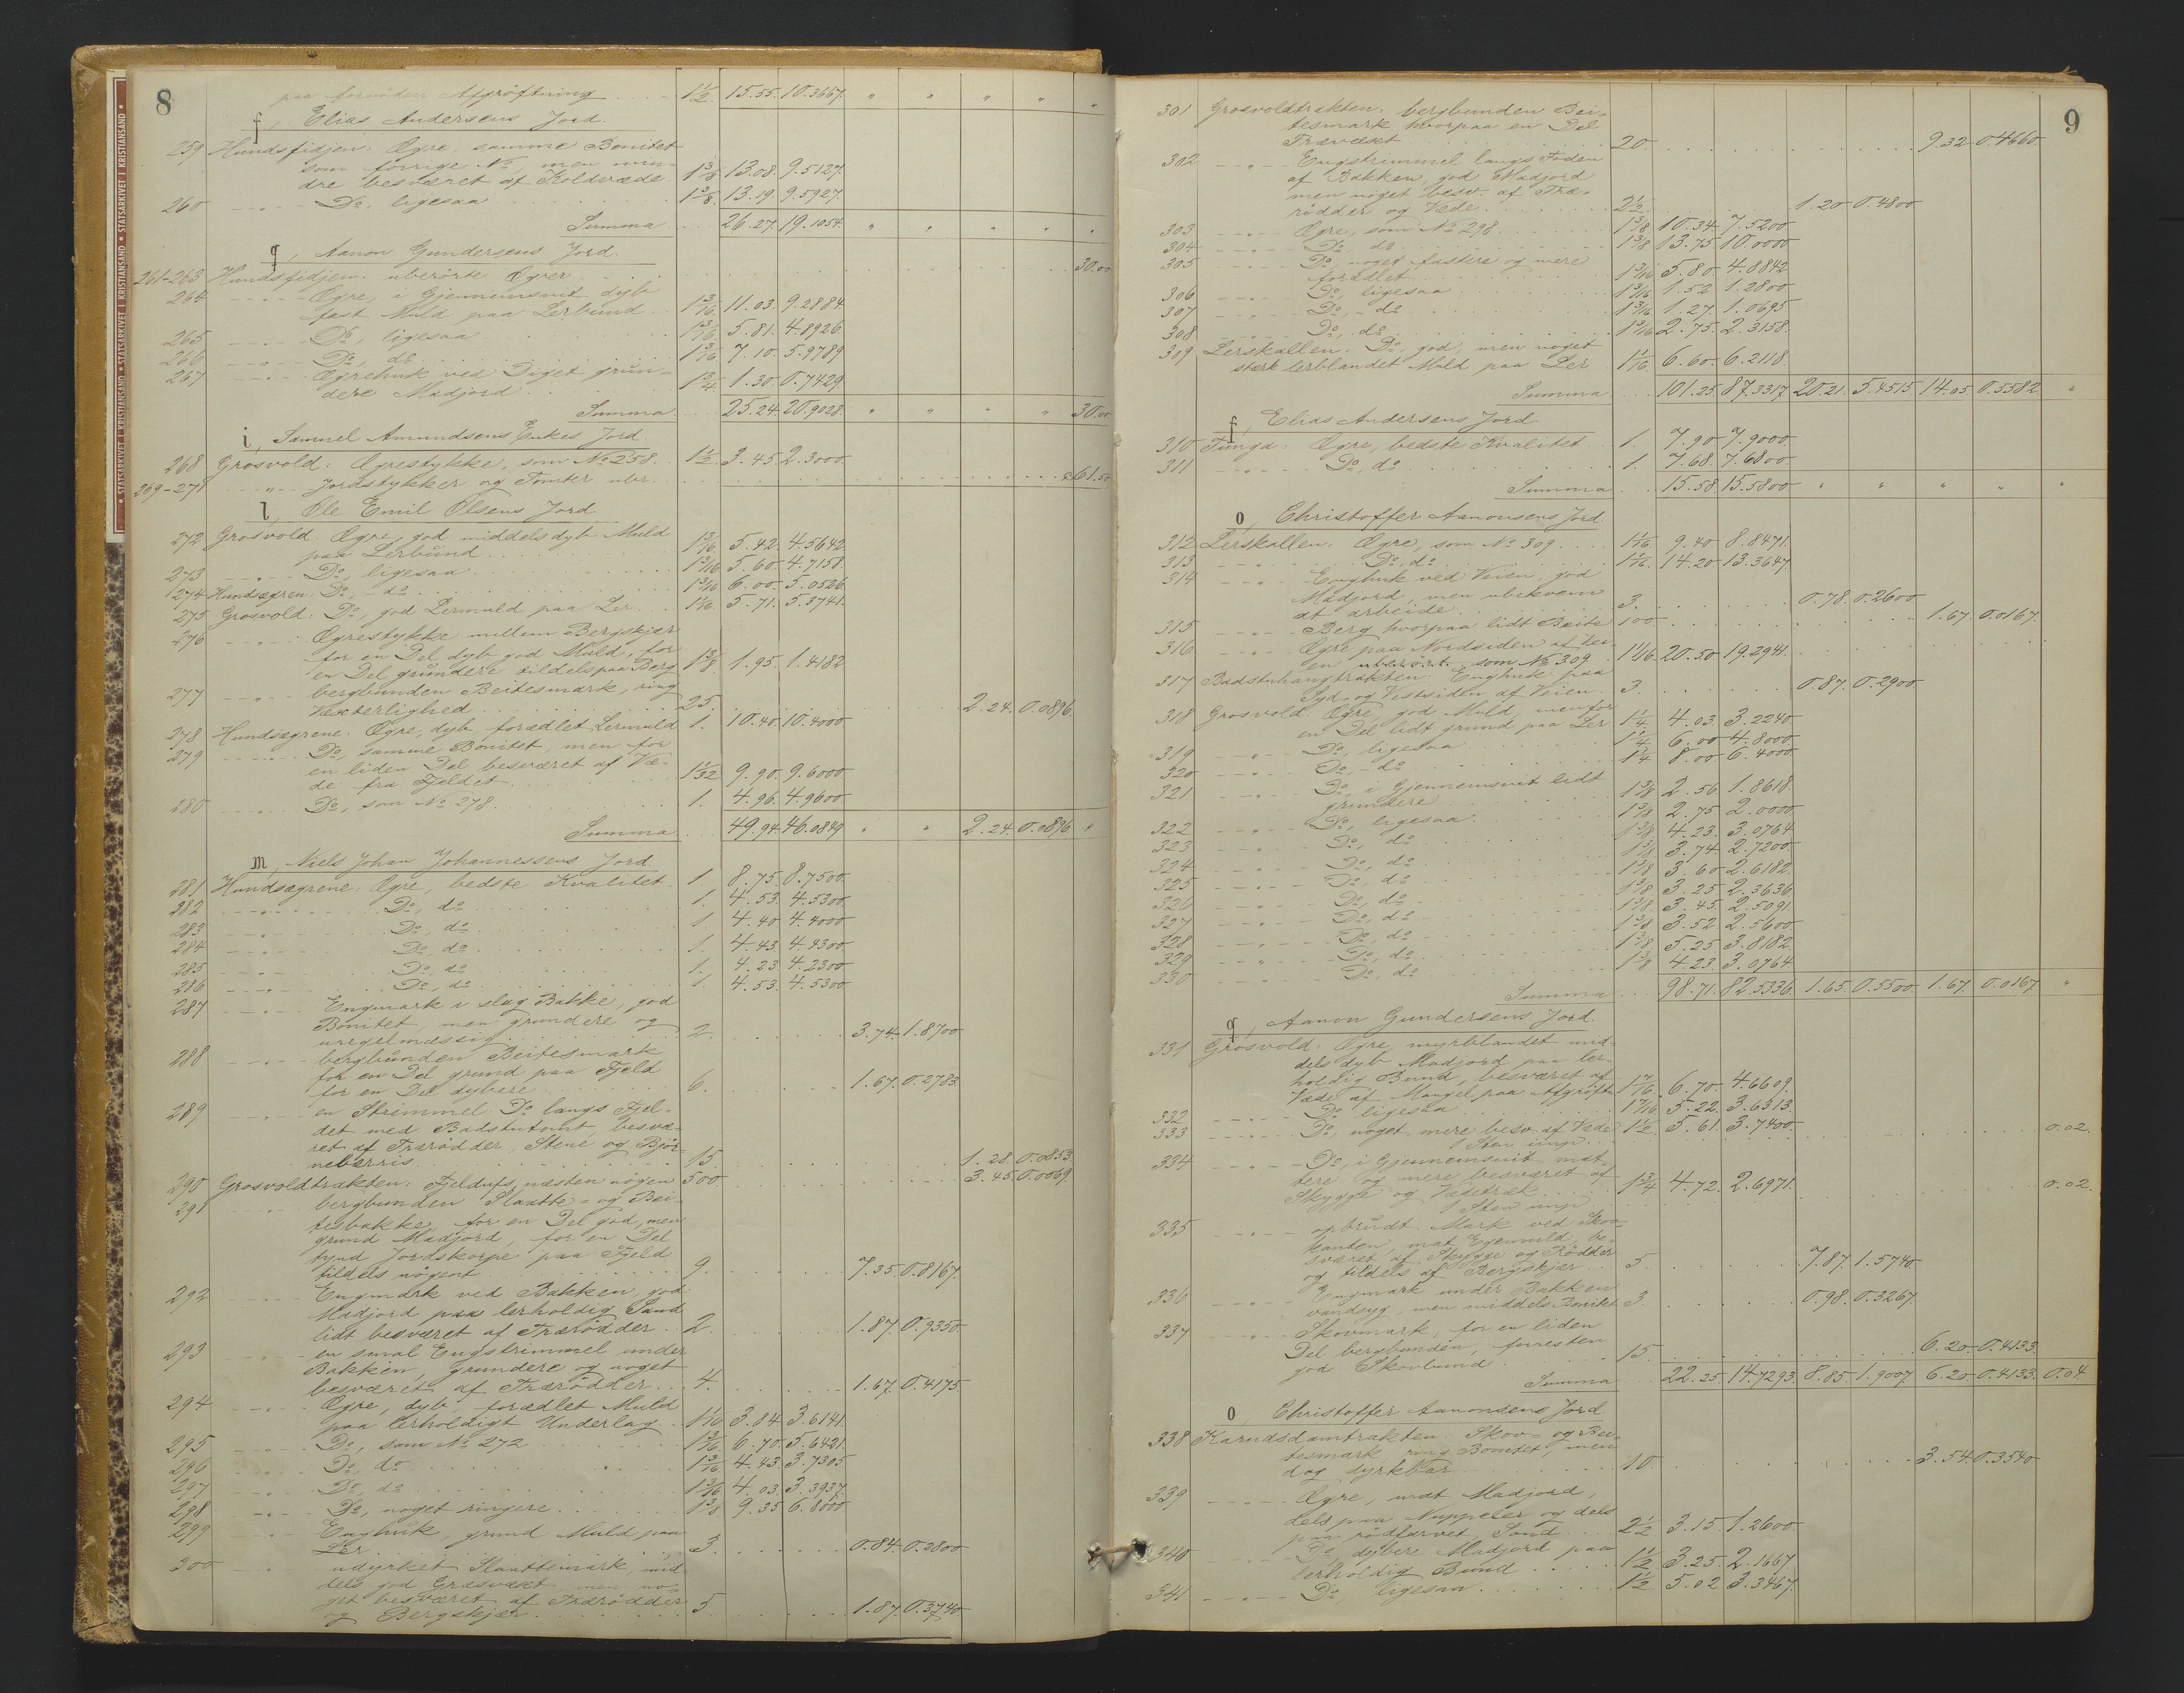 8
paa fornöden Afgröftning 1 1/2 15.55. 10.3667. " " " " "
f, Elias Andersens Jord.
259 Hundsfidjen: Ogre, samme Bonitet
som forrige No, men min-
dre besværet af Koldvæde 1 3/8 13.08. 9.5127.
260 Do, ligesaa 1 3/8. 13.19. 9.5927.
Summa 26.27. 19.1054. " " " " "
q, Aanon Gundersens Jord.
261-263 Hundsfidjen: uberörte Ogrer 30.00
264 Ogre, i Gjennemsnit dyb
fast Muld paa Lerbund 1 3/16. 11.03. 9.2884.
265 Do, ligesaa 1 3/16. 5.81. 4.8926.
266 Do, do 1 3/16 7.10. 5.9789
267 Ogrehuk ved Diget grun-
dere Madjord 1 3/4. 1.30. 0.7429
Summa 25.24. 20.9028. " " " " 30.00
i, Samuel Amundsens Enkes Jord.
268 Grosvold: Ogrestykke, som No 258. 1 1/2. 3.45. 2.3000.
269-271 " Jordstykker og Tomter uber. 61.50
l, Ole Emil Olsens Jord
272 Grosvold: Ogre, god middelsdyb Muld
paa Lerbund 1 3/16. 5.42. 4.5642
273 Do, ligesaa 1 3/16 5.60. 4.7158.
274 Hundsogren: Do, do 1 3/16 6.00. 5.0526
275 Grosvold: Do, god Lermuld paa Ler. 1 1/16. 5.71. 5.3741.
276 Ogrestykke mellem Bergskjær
for en Del dyb god Muld, for
en Del grundere tildels paa Berg 1 3/8. 1.95. 1.4182
277 bergbunden Beitesmark, ring
Vexterlighed 25. 2.24. 0.0896.
278 Hundsogrene: Ogre, dyb, forædlet Lermuld 1. 10.40. 10.4000
279 Do, samme Bonitet, men for
en liden Del besværet af Væ-
de fra Fjeldet 1 1/32 9.90. 9.6000.
280 Do, som No 278. 1. 4.96. 4.9600
Summa 49.94. 46.0849 " " 2.24. 0.0896 "
m, Niels Johan Johannessens Jord
281 Hundsogrene: Ogre, bedste Kvalitet 1. 8.75. 8.7500.
282 Do, do 1. 4.53. 4.5300.
283 Do, do 1. 4.40. 4.4000
284 Do, do 1. 4.43. 4.4300.
285 Do, do 1. 4.23. 4.2300
286 Do, do 1. 4.53. 4.5300
287 Engmark i slag Bakke, god
Bonitet, men grundere og
uregelmæssig 2. 3.74. 1.8700
288 bergbunden Beitesmark
for en Del grund paa Fjeld
for en Del dybere 6. 1.67. 0.2783
289 en Strimmel Do langs Fjel-
det med Badstutomt, besvæ-
ret af Trærödder, Stene og Björ-
nebærris 15. 1.28. 0.0853
290 Grosvoldtrakten: Fjeldufs næsten nögen 500. 3.45. 0.0069.
291 bergbunden Slaatte- og Bei-
tesbakke, for en Del god, men
grund Madjord, for en Del
tynd Jordskorpe paa Fjeld
tildels nögent 9. 7.35. 0.8167.
292 Engmark ved Bakken, god
Madjord paa lerholdig Sand
lidt besværet af Trærödder 2. 1.87. 0.9350.
293 en smal Engstrimmel under
Bakken, grundere og noget
besværet af Trærödder 4. 1.67. 0.4175
294 Ogre, dyb, forædlet Muld
paa lerholdigt Underlag 1 1/16 3.84. 3.6141.
295 Do, som No 272 1 3/16. 6.70. 5.6421.
296 Do, do 1 3/16 4.43. 3.7305
297 Do, do 1 3/16 4.03. 3.3937.
298 Do, noget ringere 1 3/8 9.35. 6.8000
299 Enghuk, grund Muld paa
Ler 3. 0.84. 0.2800
300 udyrket Slaattemark, mid-
dels god Græsvæxt men no-
get besværet af Trærödder
og Bergskjær 5. 1.87. 0.3740
9
301 Grosvoldtrakten: bergbunden Bei-
tesmark hvorpaa en Del
Trævæxt 20. 9.32. 0.4660.
302 Engstrimmel langs Foden
af Bakken, god Madjord
men noget besv. af Træ-
rödder og Væde 2 1/2. 1.20. 0.4800
303 Ogre, som No 298 1 3/8 10.34. 7.5200
304 Do, do 1 3/8 13.75. 10.0000
305 Do, noget fastere og mere
forædlet 1 3/16 5.80. 4.8842
306 Do, ligesaa 1 3/16 1.52. 1.2800
307 Do, do 1 3/16. 1.27. 1.0695
308 Do, do 1 3/16 2.75. 2.3158.
309 Lerskallen: Do, god, men noget
stærk lerblandet Muld paa Ler 1 1/16 6.60. 6.2118.
Summa 101.25. 87.3317. 20.21. 5.4515. 14.05. 0.5582 "
f, Elias Andersens Jord
310 Tunga: Ogre, bedste Kvalitet 1. 7.90. 7.9000
311 Do, do 1. 7.68. 7.6800
Summa 15.58. 15.5800 " " " " "
o, Christoffer Aanonsens Jord
312 Lerskallen: Ogre, som No 309. 1 1/16. 9.40. 8.8471.
313 Do, do 1 1/16. 14.20. 13.3647
314 Enghuk ved Veien, god
Madjord, men ubekvem
at arbeide 3. 0.78. 0.2600
315 Berg hvorpaa lidt Beite 100. 1.67. 0.0167.
316 Ogre paa Nordsiden af Vei-
en som No 309 1 1/16. 20.50. 19.2941.
317 Badstuhaugtrakten: Enghuk paa
Syd- og Vestsiden af Veien 3. 0.87. 0.2900
318 Grosvold: Ogre, god Muld, men for
en Del lidt grund paa Ler 1 1/4. 4.03. 3.2240
319 Do, ligesaa 1 1/4 6.00. 4.8000
320 Do, do 1 1/4 8.00. 6.4000
321 Do, i Gjennemsnit lidt
grundere 1 3/8 2.56. 1.8618.
322 Do, ligesaa 1 3/8 2.75. 2.0000.
323 Do, do 1 3/8 4.23. 3.0764
324 Do, do 1 3/8 3.74. 2.7200
325 Do, do 1 3/8 3.60. 2.6182
326 Do, do 1 3/8 3.25. 2.3636
327 Do, do 1 3/8 3.45. 2.5091.
328 Do, do 1 3/8 3.52. 2.5600
329 Do, do 1 3/8 5.25. 3.8182
330 Do, do 1 3/8 4.23. 3.0764
Summa 98.71. 82.5336. 1.65. 0.5500 1.67. 0.0167 "
q, Aanon Gundersens Jord.
331 Grosvold: Ogre, myrblandet mid-
dels dyb Madjord paa ler-
holdig Bund, besværet af
Væde af Mangel paa Afgröft 1 7/16. 6.70. 4.6609.
332 Do ligesaa 1 7/16 5.22. 3.6313
333 Do, noget mere besv. af Væde 1 1/2. 5.61. 3.7400
1 Sten 0.02.
334 Do, i Gjennemsnit mat-
tere og mere besværet af
Skygge og Vædetræk 1 3/4 4.72. 2.6971.
1 Sten 0.02.
335 opbrudt Mark ved Skov-
kanten, mat Egemuld, be-
sværet af Skygge og Rödder
og tildels af Bergskjær 5. 7.87. 1.5740
336 Engmark under Bakken
vandsyg, men middels Bonitet 3. 0.98. 0.3267.
337 Skovmark, for en liden
Del bergbunden, forresten
god Skovbund 15. 6.20. 0.4133.
Summa 22.25. 14.7293. 8.85. 1.9007. 6.20. 0.4133. 0.04
o, Christoffer Aanonsens Jord
338 Karudsdamtrakten: Skov- og Bei-
tesmark ring Bonitet, men
dog dyrkbar 10. 3.54. 0.3540
339 Ogre, mat Madjord,
dels paa Nuppeler og dels
paa rödfarvet Sand 2 1/2 3.15. 1.2600.
340 Do, dybere Madjord paa
lerholdig Bund 1 1/2 3.25. 2.1667.
341 Do ligesaa 1 1/2 5.02 3.3467.
• STATSARKIVET I KRISTIANSAND • STATSARKIVET I KRISTIANSAND • STATSARKIVET I KRISTIANSAND •